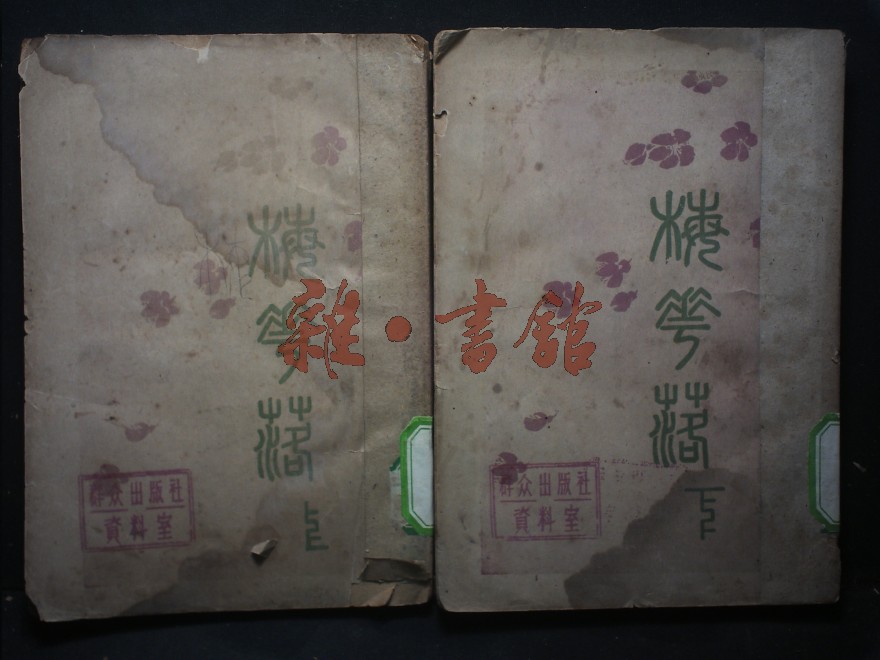 梅花落
上
群众出版社
資料室
雜·書館
梅花落
下
群众出版社
資料室